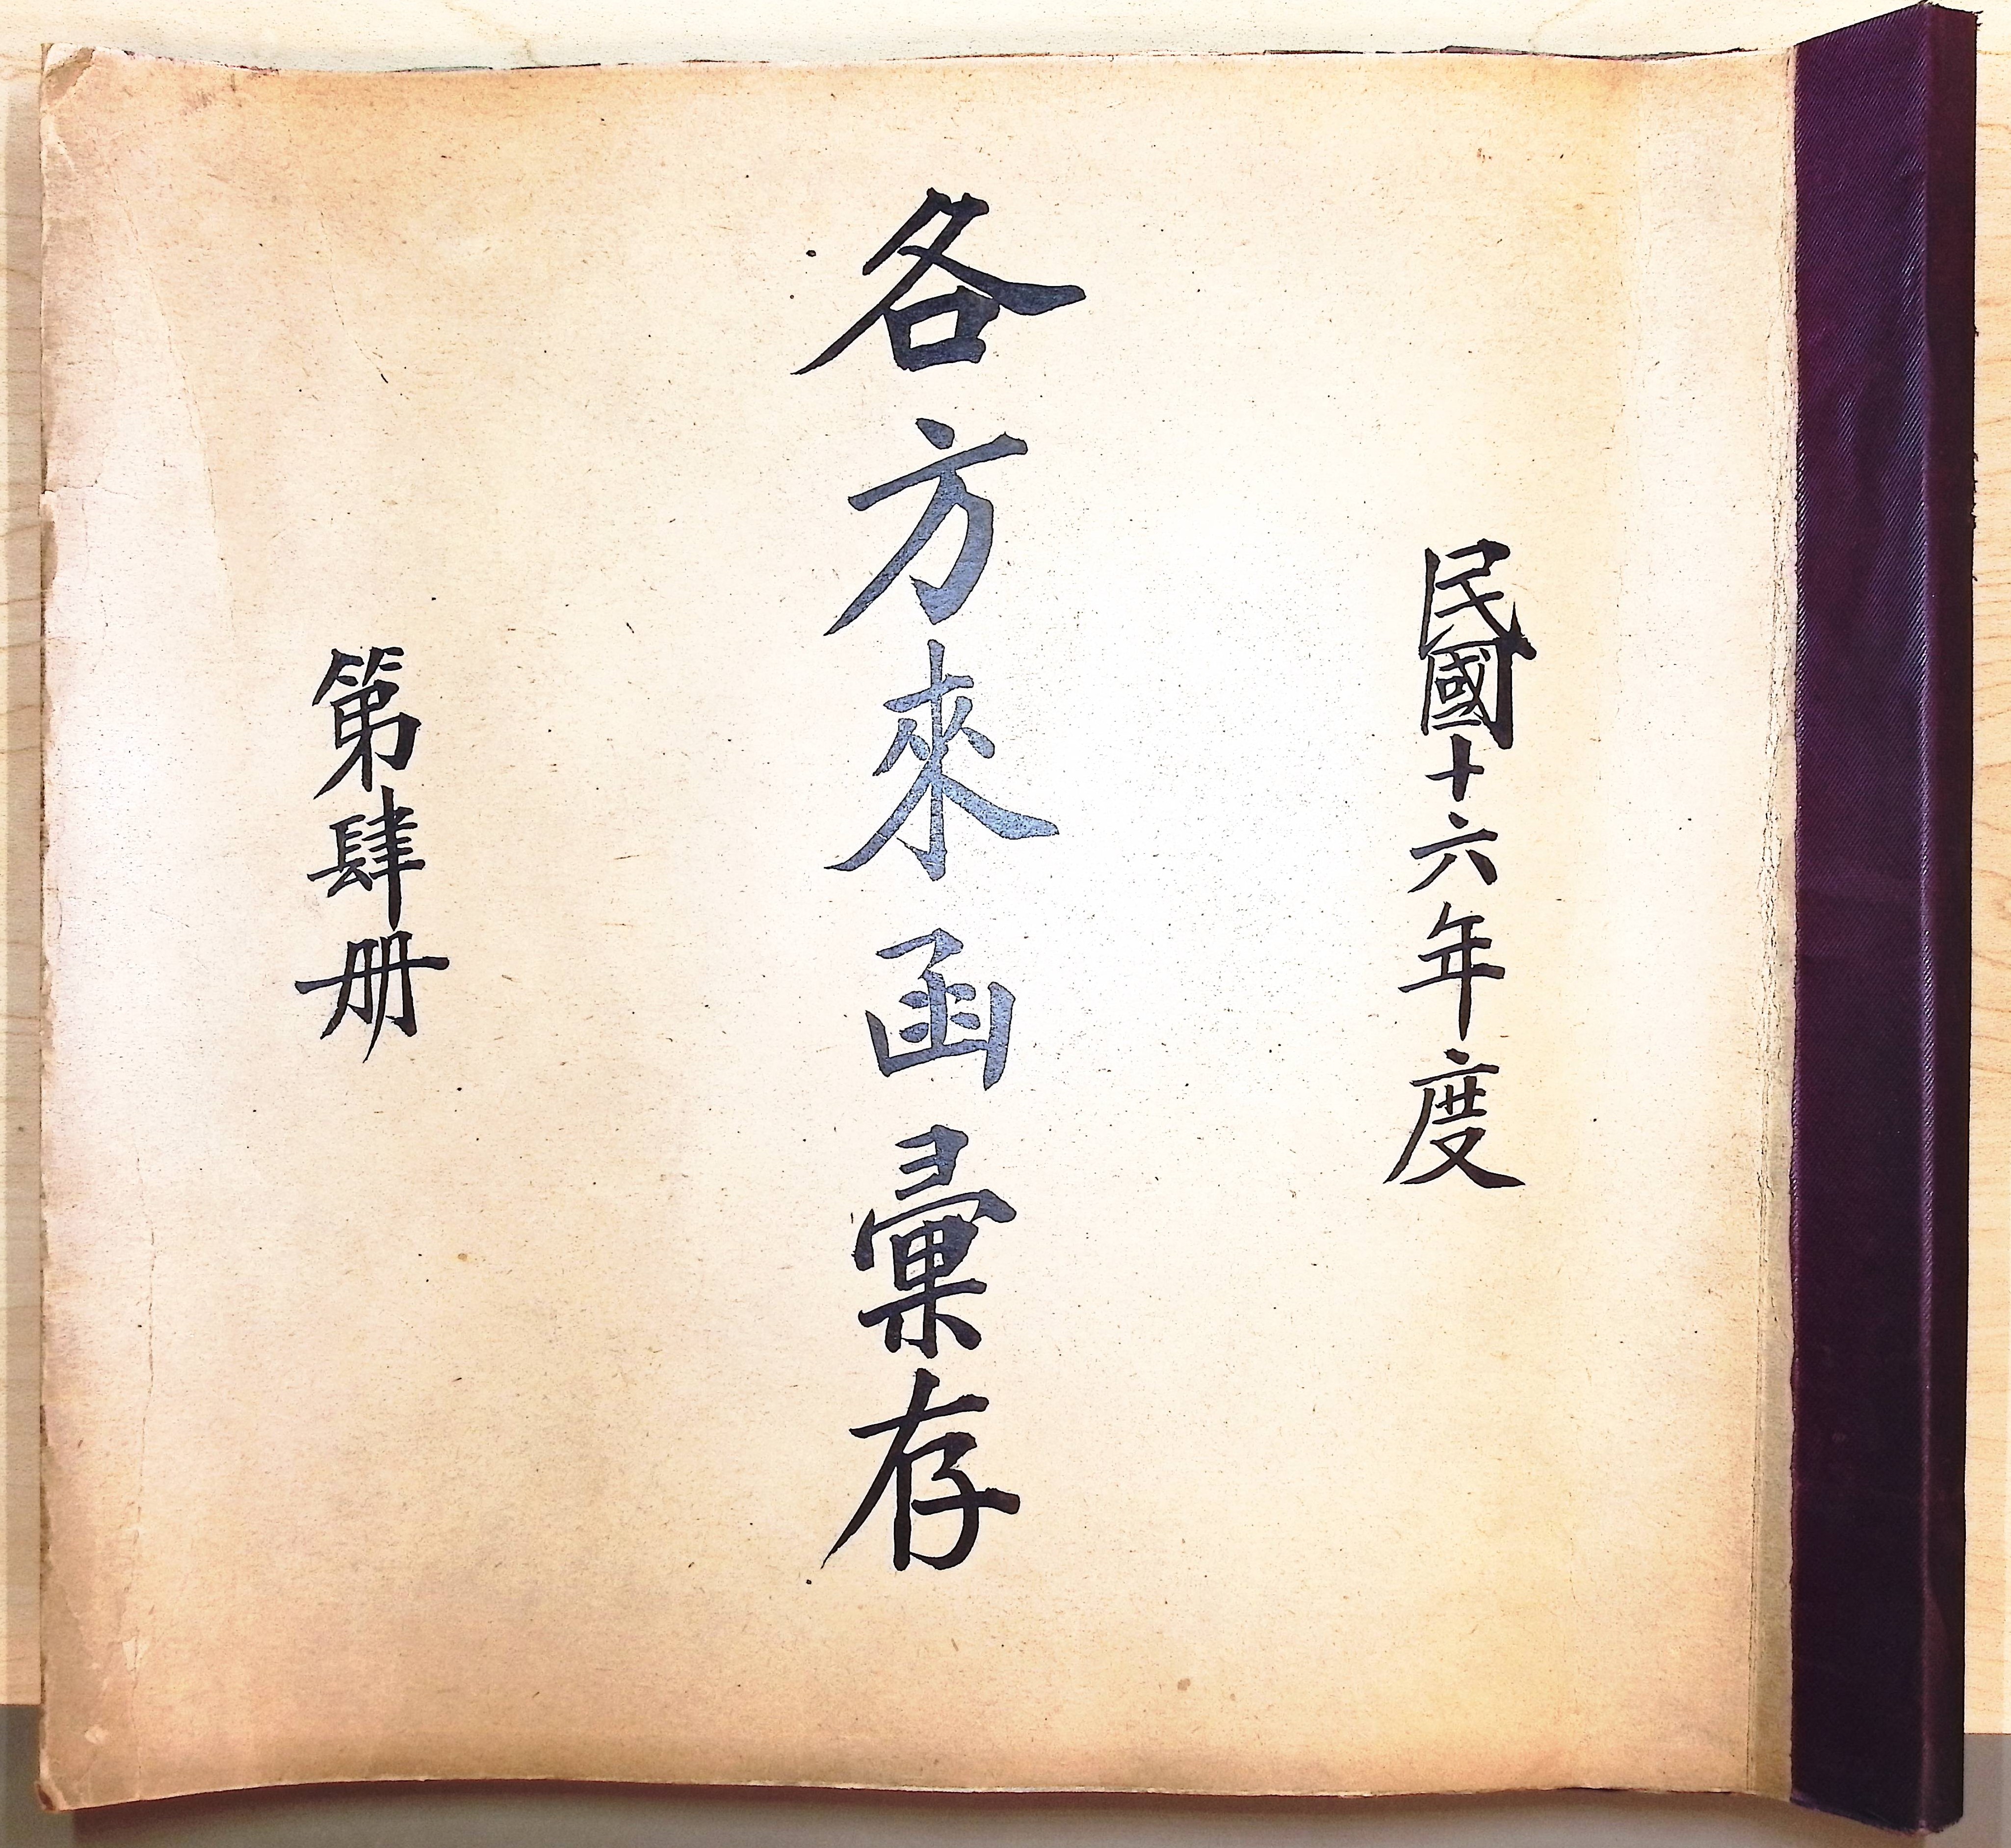 民國十六年度
各方來函彙存
第肆册